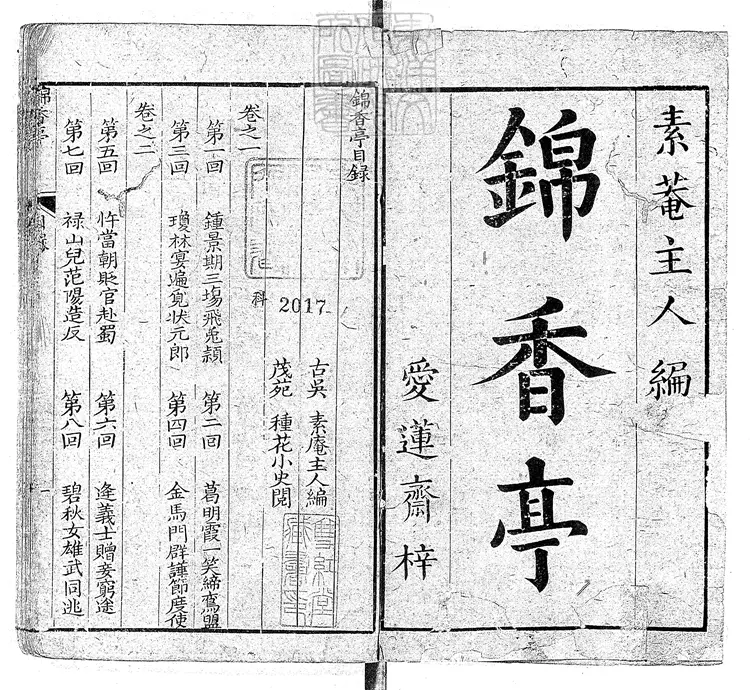 素菴主人編
錦香亭
愛蓮齋梓
錦香亭目録
古吳 素庵主人編
茂苑 種花小史閱
雙紅堂
藏書印
2017
科
卷之一
第一回 鍾景期三塲飛兎穎 第二回 葛明霞一笑締鴛盟
第三回 瓊林宴遍覓狀元郎 第四回 金馬門群譁節度使
卷之二
第五回 忤當朝貶官赴蜀 第六回 逢義士贈妾窮途
第七回 禄山兒范陽造反 第八回 碧秋女雄武同逃
錦香亭 目錄 一